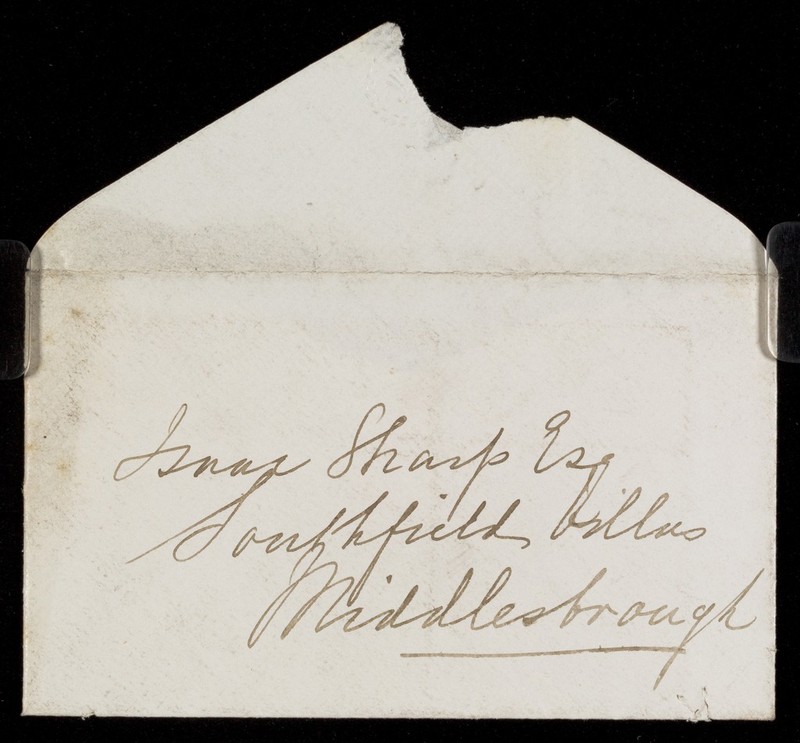 Isaac Sharp Esq
Southfield Villas
Middlesbrough